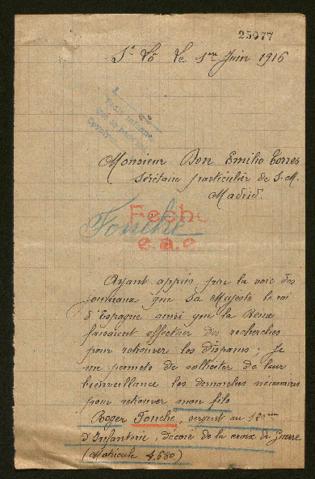 25077
St Lô le 1er Juin 1916
Monsieur Don Emilio Torres
Secrétaire particulier de S. M.
Madrid.
Fecho
Fouché
e.a.c
Ayant appris par la voie des
journaux que Sa Majesté le roi
d'Espagne ainsi que la Reine
faisaient effectuer des recherches
pour retrouver les disparus. Je
me permets de solliciter de leur
bienveillance les démarches nécessaires
pour retrouver mon fils
Roger Fouché, sergent au
d'Infanterie, décoré de la croix de Guerre
(Matricule 4,680)